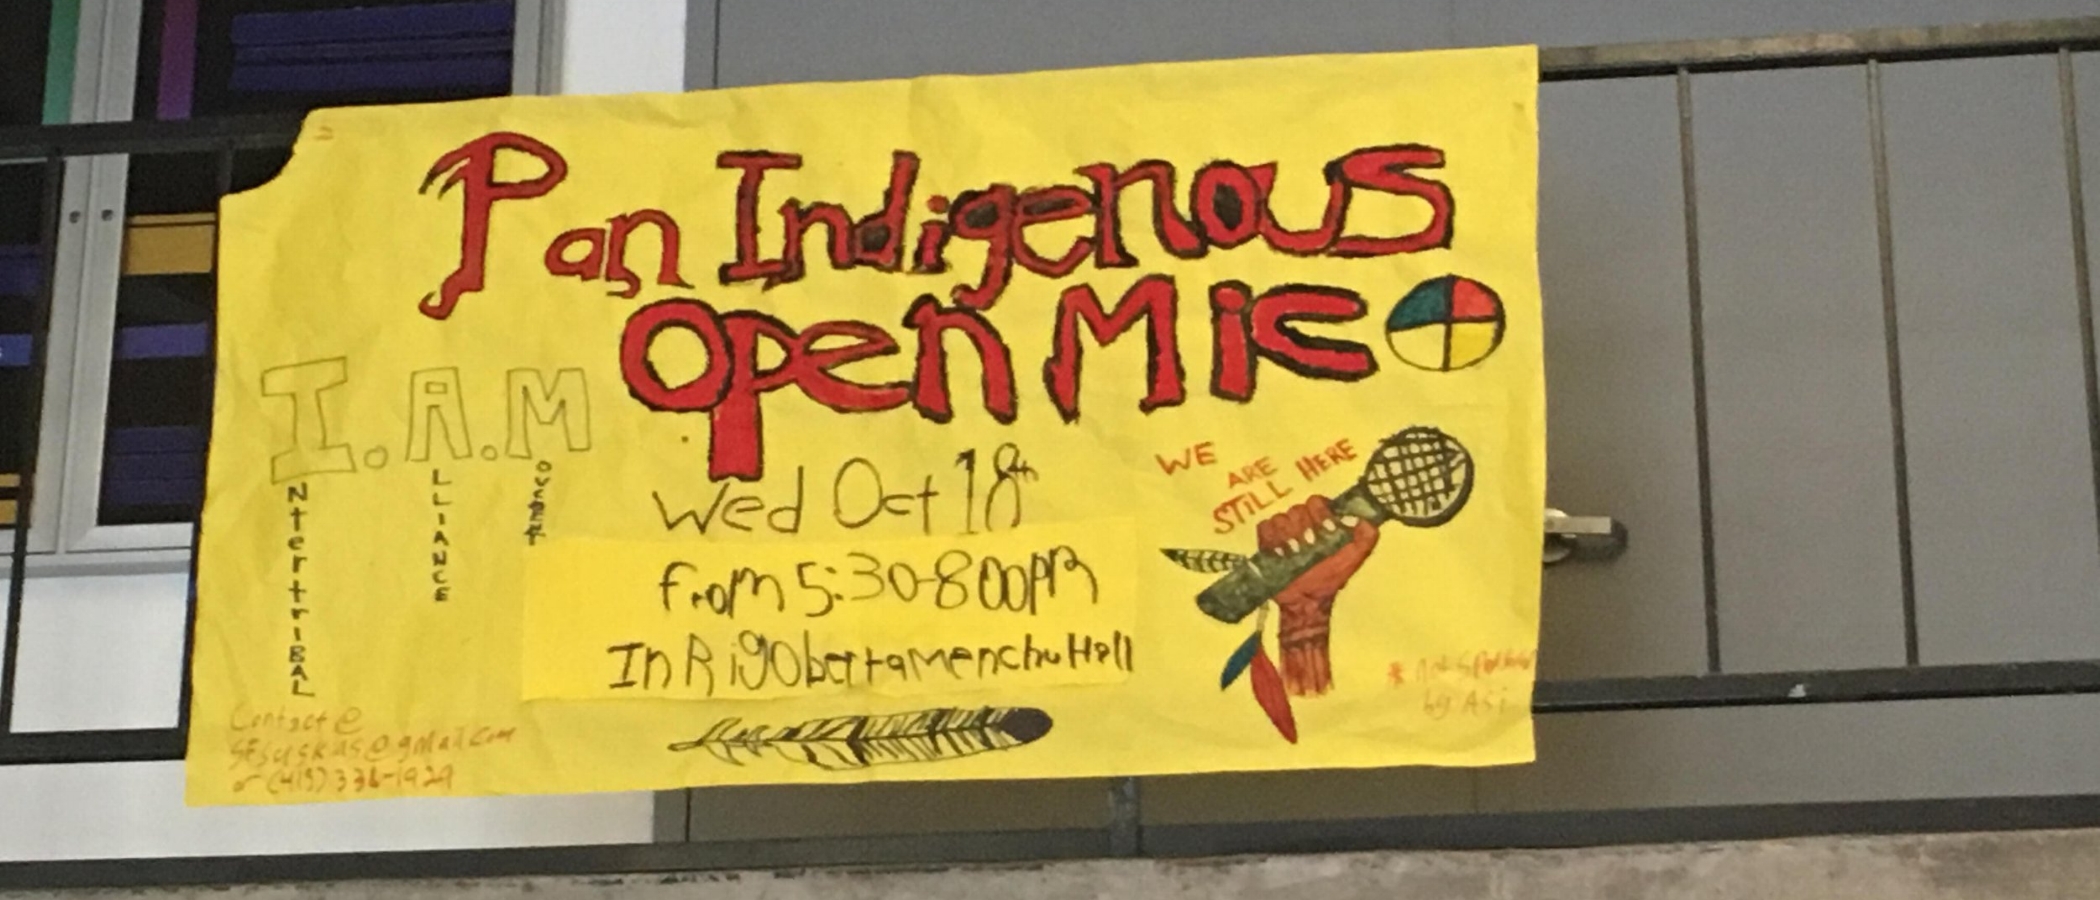 Pan Indigenous
Open Mic
I.A.M
Ntertribal
LLIANCE
Wed Oct 18th
from 5:30-800pm
In Rigobertamenchu Hall
WE
ARE
STILL HERE
Contact @
@gmail.com
or
by Asi